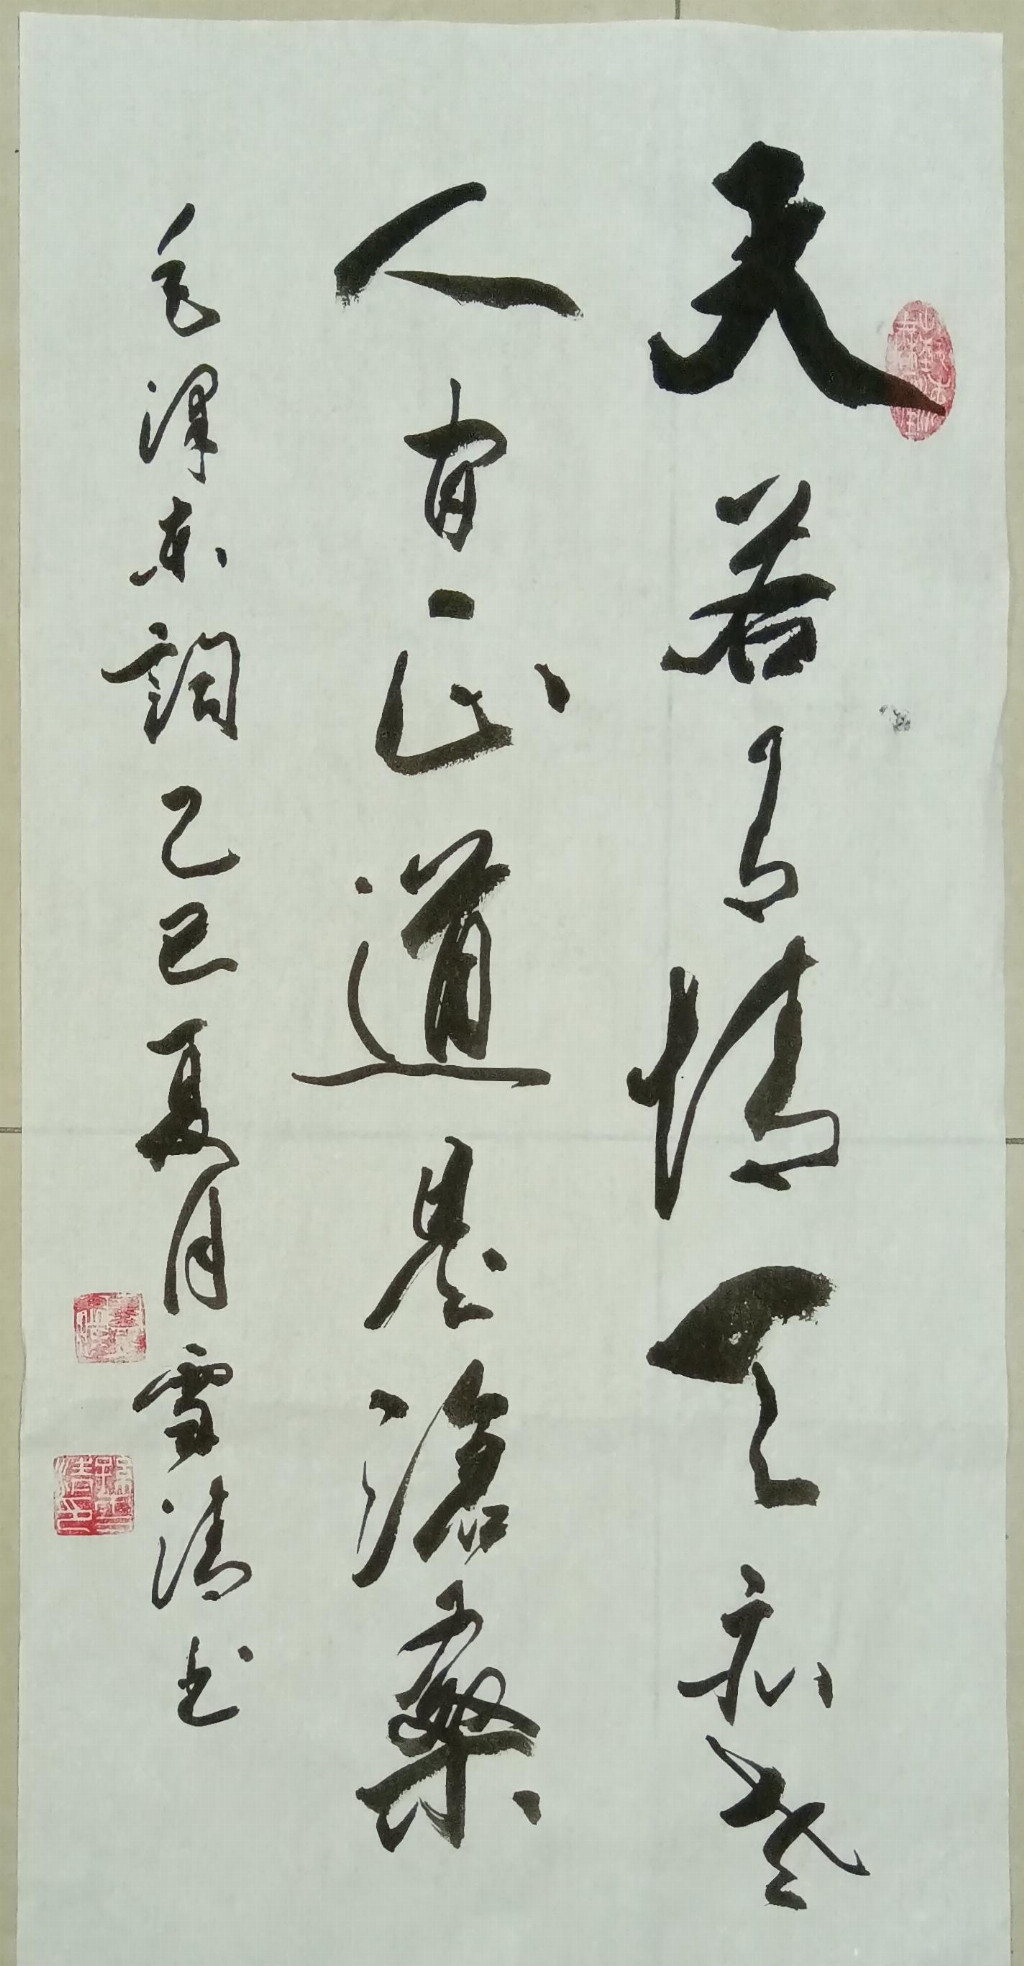 天若有情天亦老
人间正道是滄桑
毛澤东詞乙巳夏月雪清书